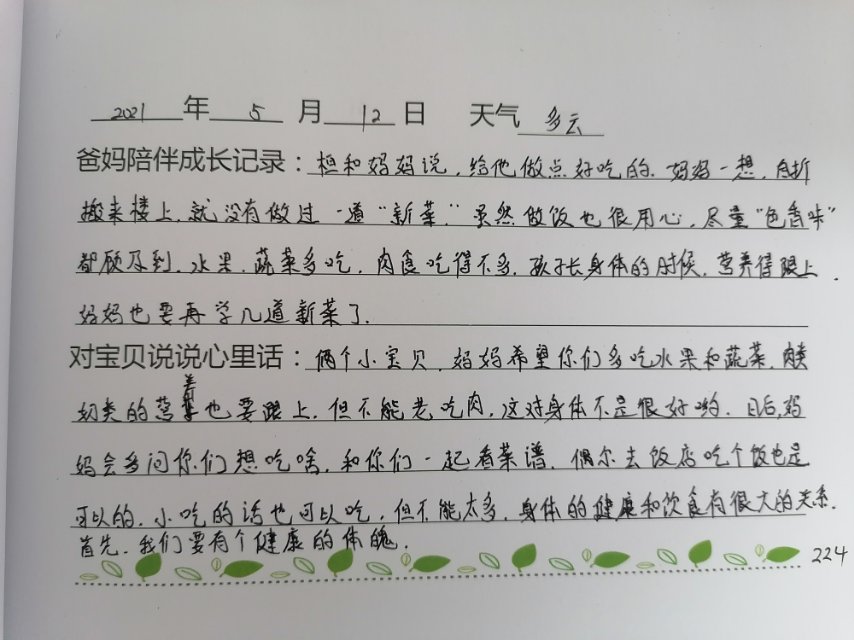 2021 年 5 月 12 日 天气 多云
爸妈陪伴成长记录：想和妈妈说，给他做点好吃的.妈妈一想，自折
搬来楼上，就没有做过一道“新菜.”虽然做饭也很用心，尽量“色香味”
都顾及到.水果，蔬菜多吃，肉食吃得不多，孩子长身体的时候，营养得跟上.
妈妈也要再学几道新菜了.
对宝贝说说心里话：俩个小宝贝，妈妈希望你们多吃水果和蔬菜，肉类
奶类的营养也要跟上，但不能老吃肉，这对身体不是很好哟.日后，妈
妈会多问你们想吃啥，和你们一起看菜谱.偶尔去饭店吃个饭也是
可以的，小吃的话也可以吃，但不能太多，身体的健康和饮食有很大的关系.
首先，我们要有个健康的体魄.
224